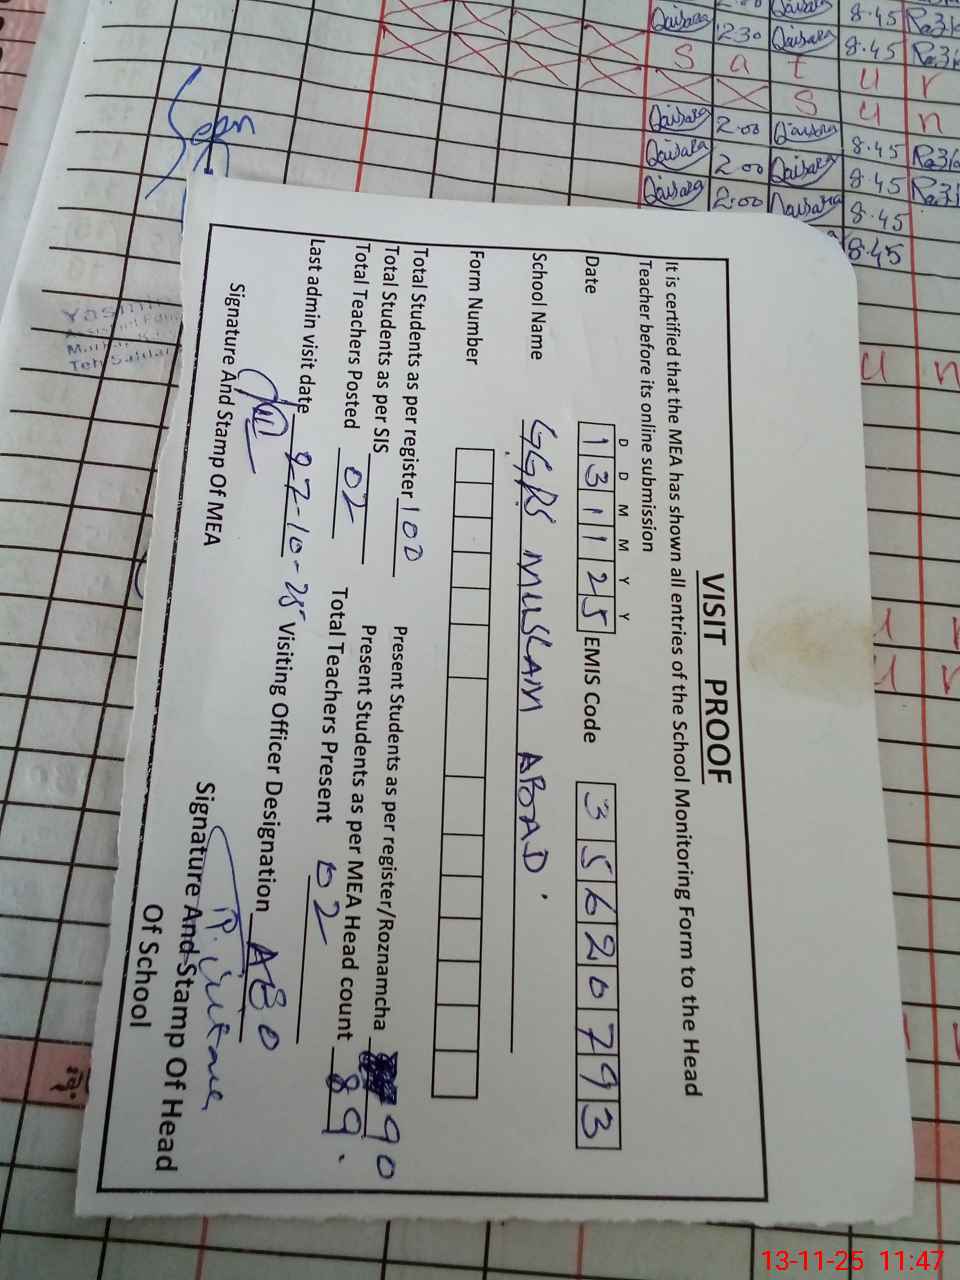 VISIT PROOF
It is certified that the MEA has shown all entries of the School Monitoring Form to the Head
Teacher before its online submission
D D M M Y Y
Date 1 3 1 1 2 5 EMIS Code 3 5 6 2 0 7 9 3
School Name GGPS MUSLAM ABOAD.
Form Number
Total Students as per register 100 Present Students as per register/Roznamcha 90
Total Students as per SIS Present Students as per MEA Head count 89.
Total Teachers Posted 02 Total Teachers Present 02
Last admin visit date 27-10-25 Visiting Officer Designation AEO
Signature And Stamp Of MEA Signature And Stamp Of Head
Of School
Qaisara 12:30 Qaisara 8.45
S a t u r
S u n
Qaisara 2.00 Qaisara 8.45
Qaisara 2.00 Qaisara 8.45
Qaisara 2:00 Qaisara 8.45
8.45
u n
13-11-25 11:47